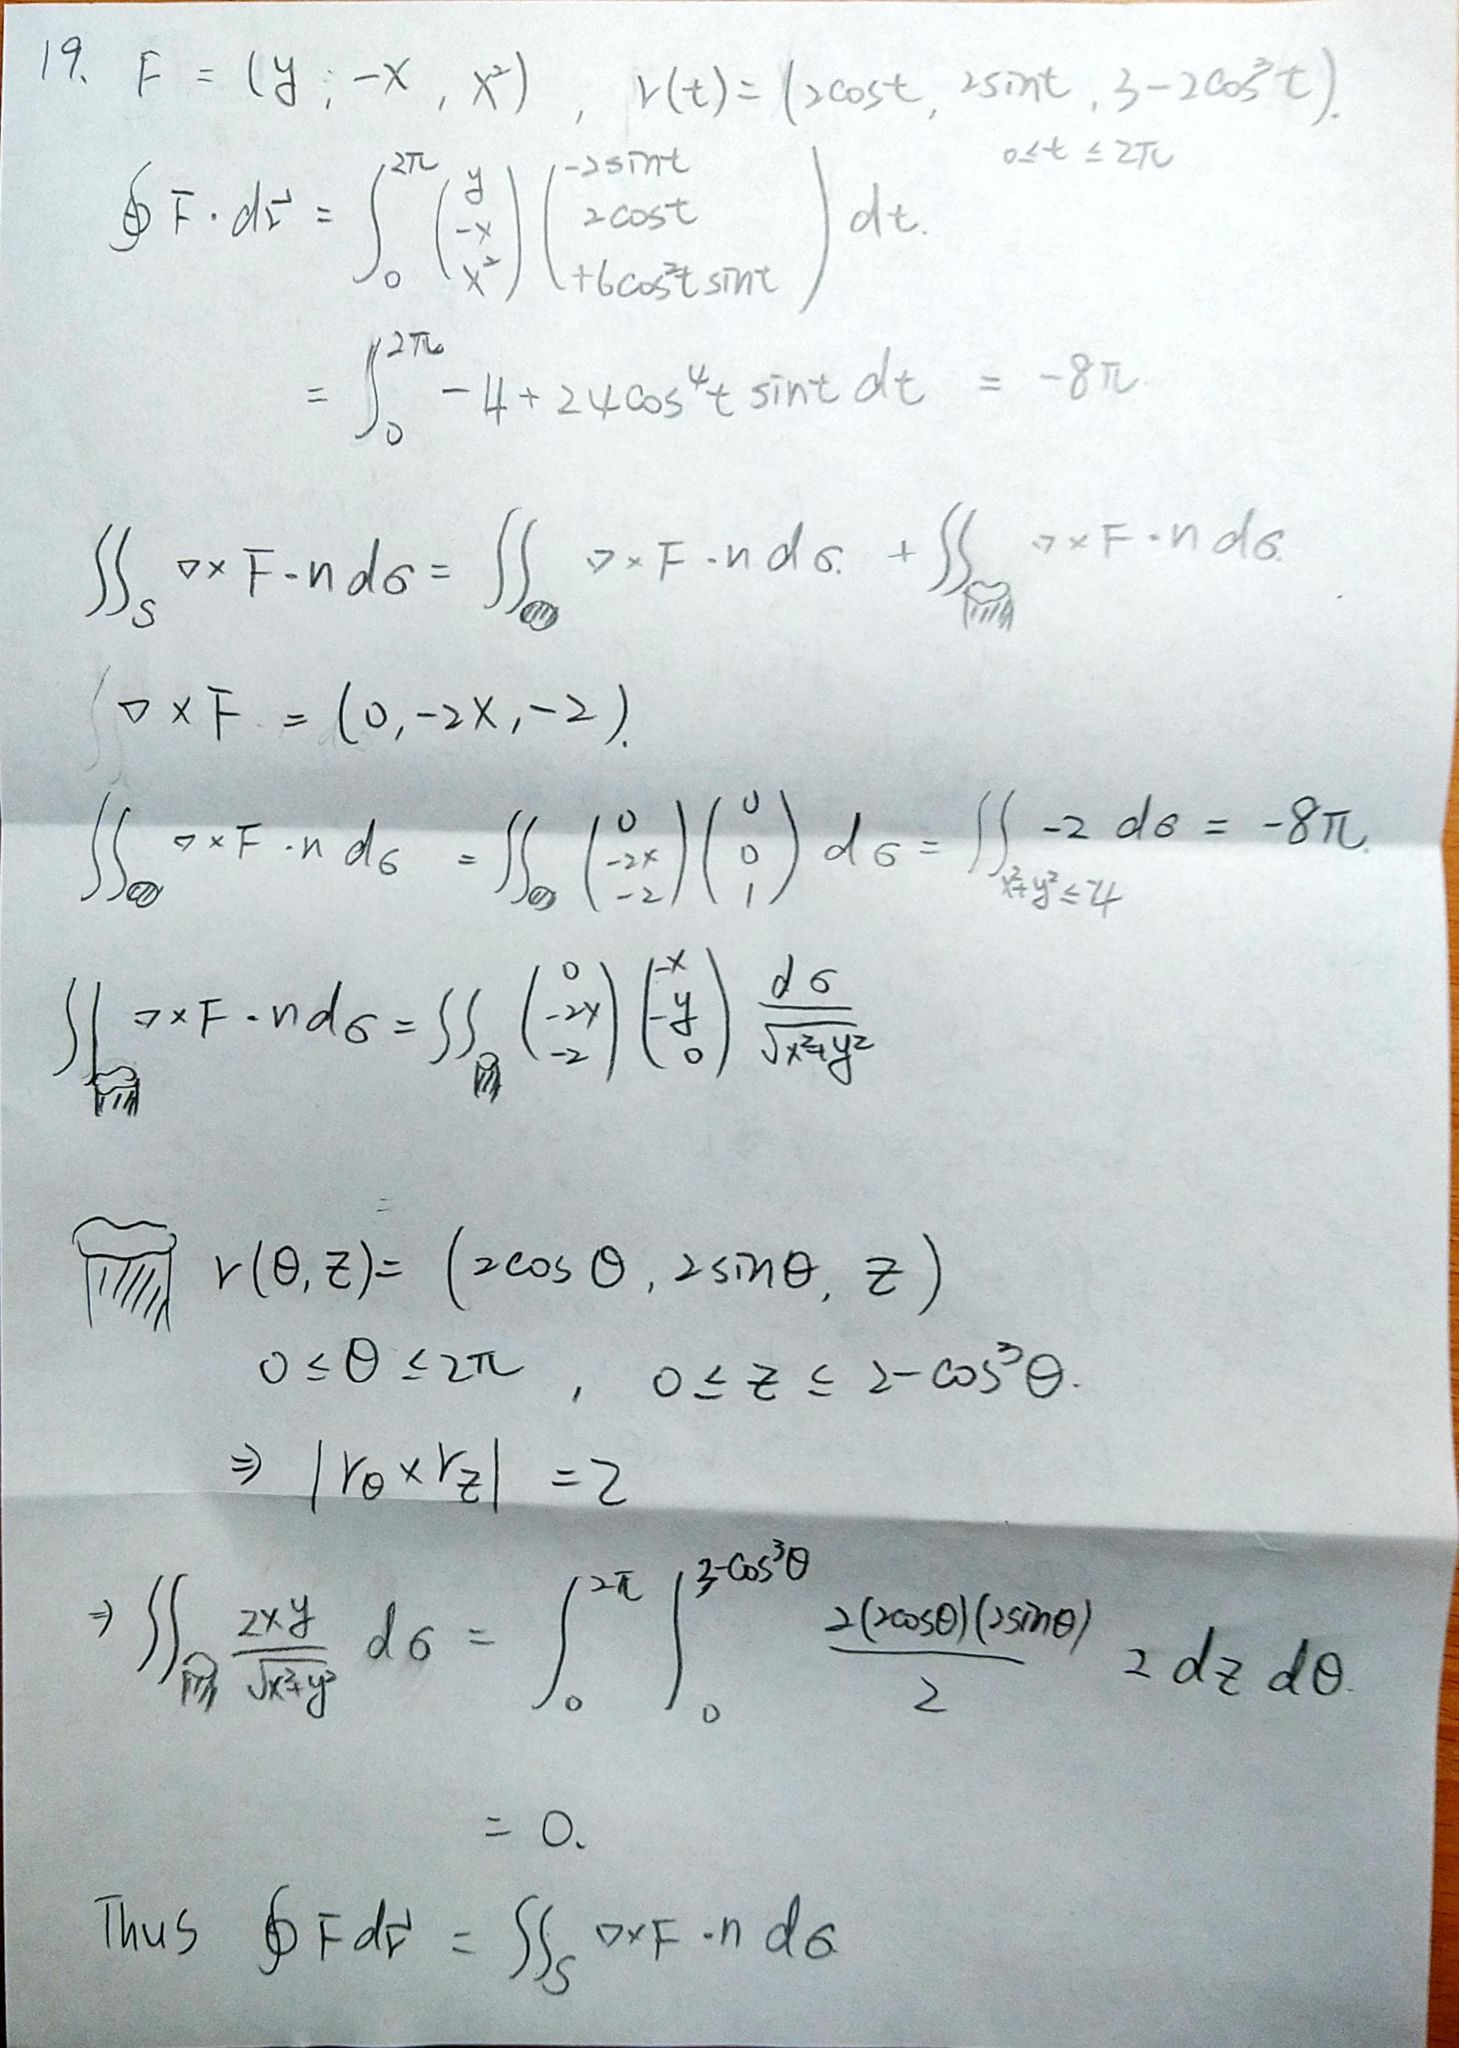 19. F = (y, -x, x²), r(t) = (2cost, 2sint, 3-2cos³t).
0≤t≤2π
∮ F·dr⃗ = ∫₀^2π (y, -x, x²) (-2sint, 2cost, +6cos²t sint) dt.
= ∫₀^2π -4+24cos⁴t sint dt = -8π
∬_S ∇×F·n dσ = ∬ ∇×F·n dσ. + ∬ ∇×F·n dσ.
∇×F = (0, -2x, -2).
∬ ∇×F·n dσ = ∬ (0, -2x, -2) (0, 0, 1) dσ = ∬_x²+y²≤4 -2 dσ = -8π.
∬ ∇×F·n dσ = ∬ (0, -2x, -2) (-x, -y, 0) dσ/√x²+y²
r(θ, z) = (2cosθ, 2sinθ, z)
0≤θ≤2π, 0≤z≤2-cos³θ.
⇒ |r_θ × r_z| = 2
⇒ ∬ 2xy/√x²+y² dσ = ∫₀^2π ∫₀^3-cos³θ 2(2cosθ)(2sinθ)/2 2 dz dθ.
= 0.
Thus ∮ F dr⃗ = ∬_S ∇×F·n dσ